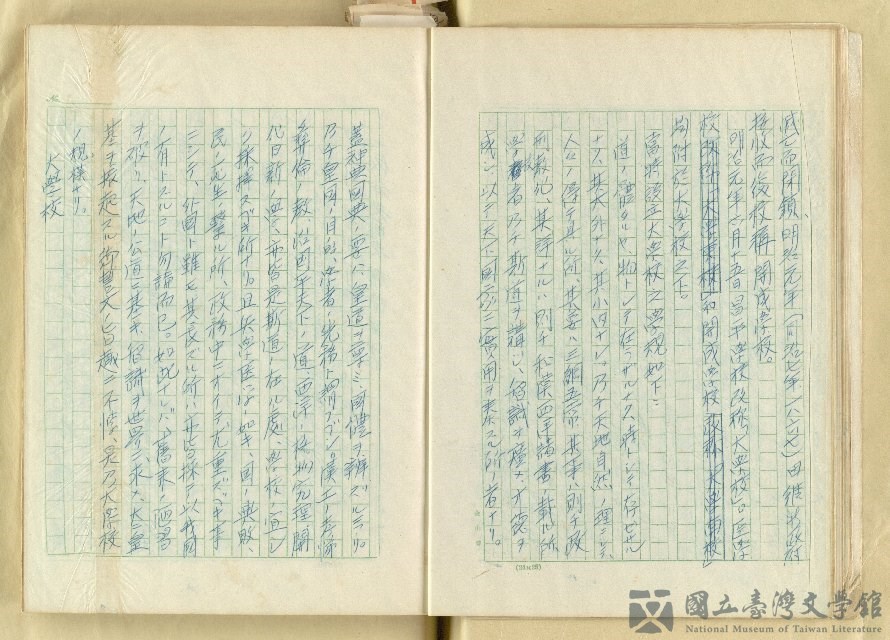 滅亡而閉鎖、明治元年(同治七年、一八六七)由維新政府
接收而後校稱「開成學校」。
明治元年六月十五日昌平學校改稱大學校、醫學
校和開成學校
均附設大學校之下。
當時設立大學校之學規如下:
道ノ體タルヤ物トシテ在ラザルナク、時トシテ存セザル
ナク、其大外ナク、其小内ナシ、乃チ天地自然ノ理ニシテ
人々ノ得テ具ル所、其要ハ三綱五常、其事ハ則チ政
刑教化、其詳ナルハ則チ和漢西洋諸書ノ載ル所
學校者乃チ斯道ヲ講ジ、智識ヲ廣メ、才德ヲ
成シ以テ天下國家ニ實用ヲ奏スル所ノ者ナリ。
蓋神典國典ノ要ハ皇道ヲ尊ミ、國體ヲ辨ズルニアリ。
乃チ皇國ノ目的、學者ノ先務ト謂フベシ。漢土ノ孝悌
彝倫ノ教、治國平天下ノ道、西洋ノ格物窮理開
化日新ノ學、亦皆是斯道ノ在ル處、學校ノ宜シ
ク採擇スベキ所ナリ。且兵學醫學ノ如キ、國ノ興敗、
民ノ死生ノ繫ル所、政務中ニオイテ尤重ズベキ事
ニシテ、外國ト雖モ其長ズル所ハ亦皆採テ以我國
ノ有トスルコト勿論而已。如此ナレバ、舊來ノ陋習
ヲ破リ、天地ノ公道ニ基キ、智識ヲ世界ニ求メ、大ニ皇
基ヲ振起スル御誓文ノ旨趣ニ不悖、是乃大學校
ノ規模ナリ。
大學校
國立臺灣文學館
National Museum of Taiwan Literature